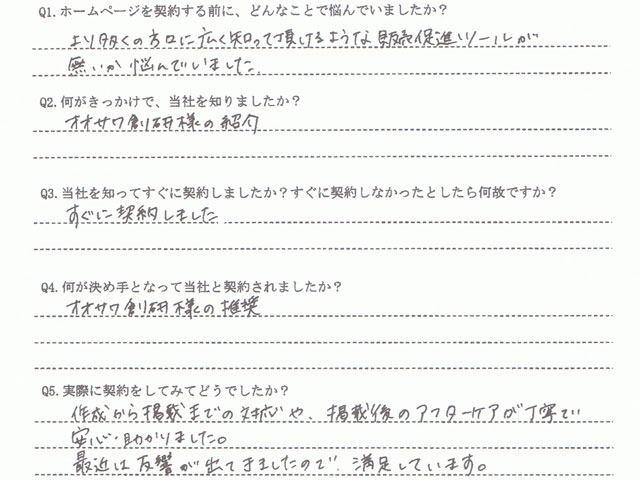 Q1. ホームページを契約する前に、どんなことで悩んでいましたか？
より多くの方々に広く知って頂けるような販売促進ツールが
無いか悩んでいました。
Q2. 何がきっかけで、当社を知りましたか？
オオサワ創研様の紹介
Q3. 当社を知ってすぐに契約しましたか？すぐに契約しなかったとしたら何故ですか？
すぐに契約しました
Q4. 何が決め手となって当社と契約されましたか？
オオサワ創研様の推奨
Q5. 実際に契約をしてみてどうでしたか？
作成から掲載までの対応や、掲載後のアフターケアが丁寧で
安心・助かりました。
最近は反響が出てきましたので、満足しています。